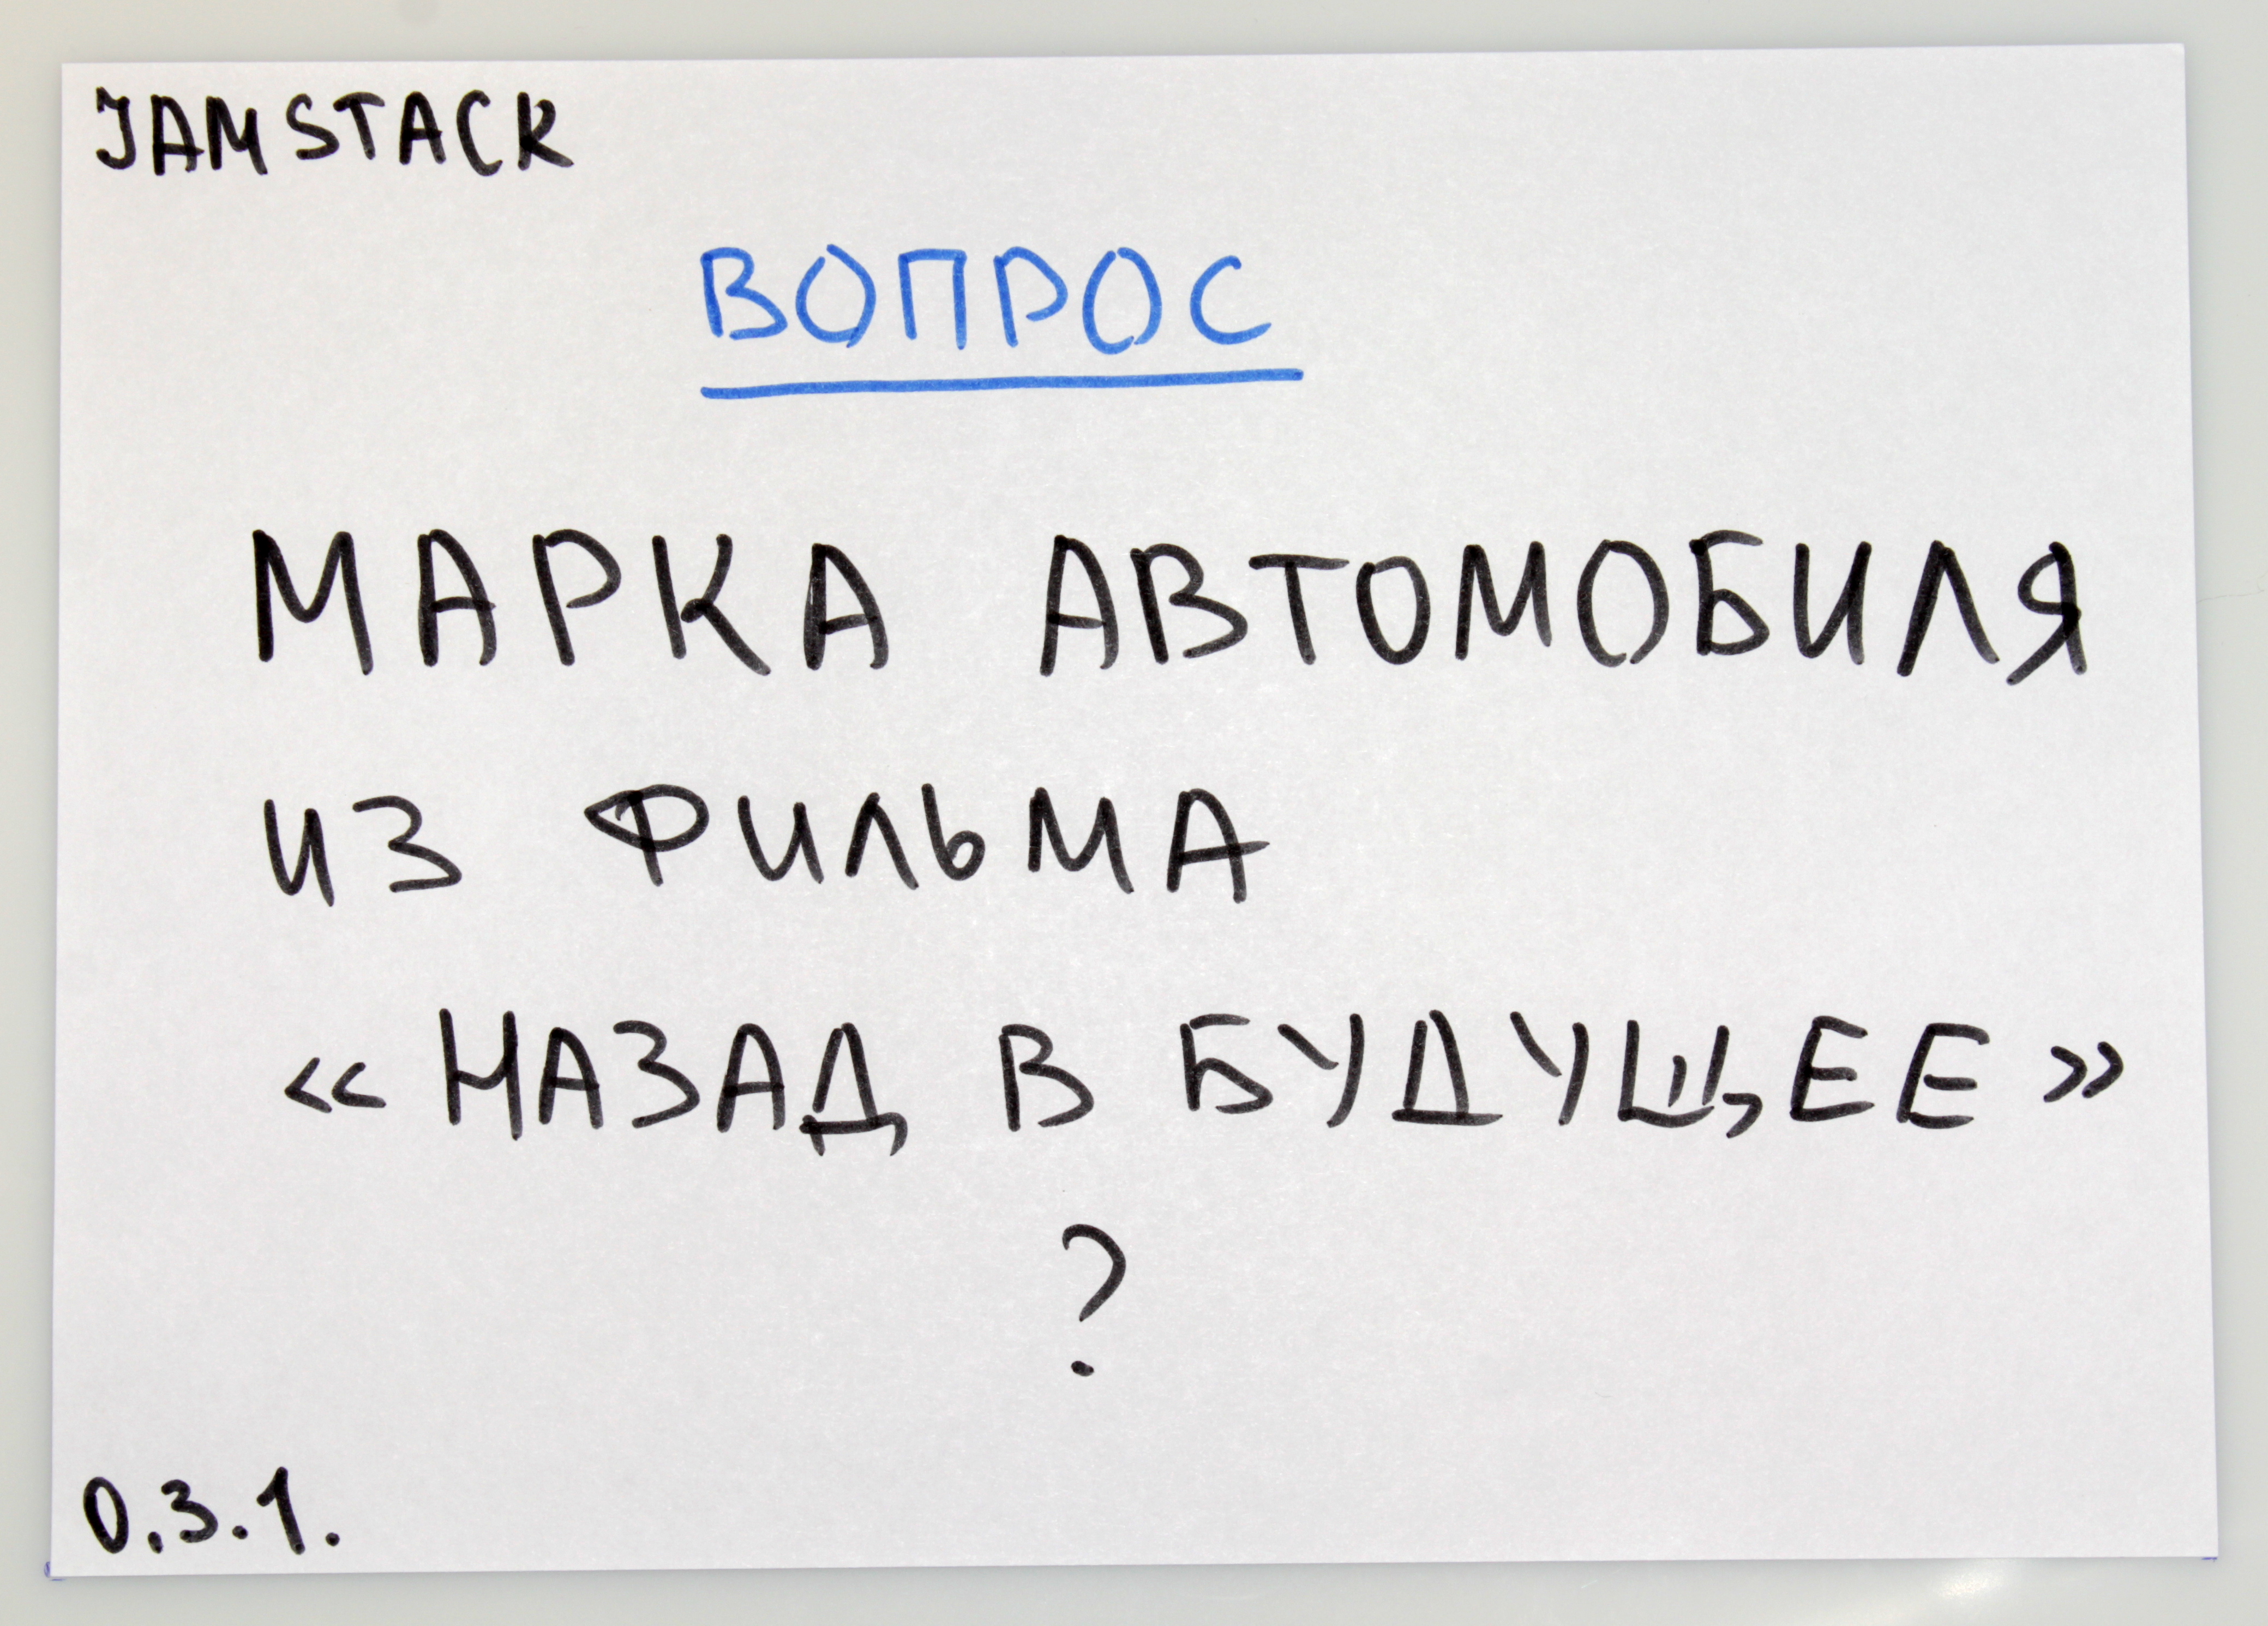 JAMSTACK
ВОПРОС
МАРКА АВТОМОБИЛЯ
ИЗ ФИЛЬМА
«НАЗАД В БУДУЩЕЕ»
?
0.3.1.